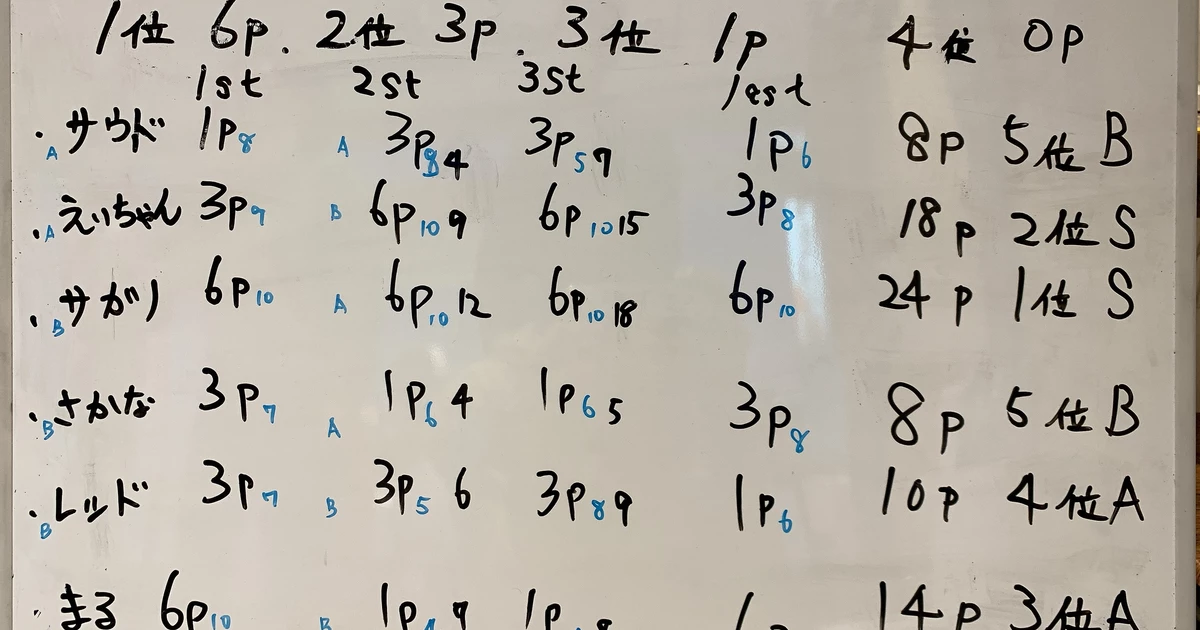 1位 6p. 2位 3p. 3位 1p 4位 0p
1st 2st 3st last
・A サウド 1P8 A 3P8 4 3P5 7 1P6 8P 5位 B
・A えいちゃん 3P9 B 6P10 9 6P10 15 3P8 18P 2位 S
・B サガリ 6P10 A 6P10 12 6P10 18 6P10 24P 1位 S
・B さかな 3P7 A 1P6 4 1P6 5 3P8 8P 5位 B
・B レッド 3P7 B 3P5 6 3P8 9 1P6 10P 4位 A
・まる 6P10 B 1P 7 1P 14P 3位 A